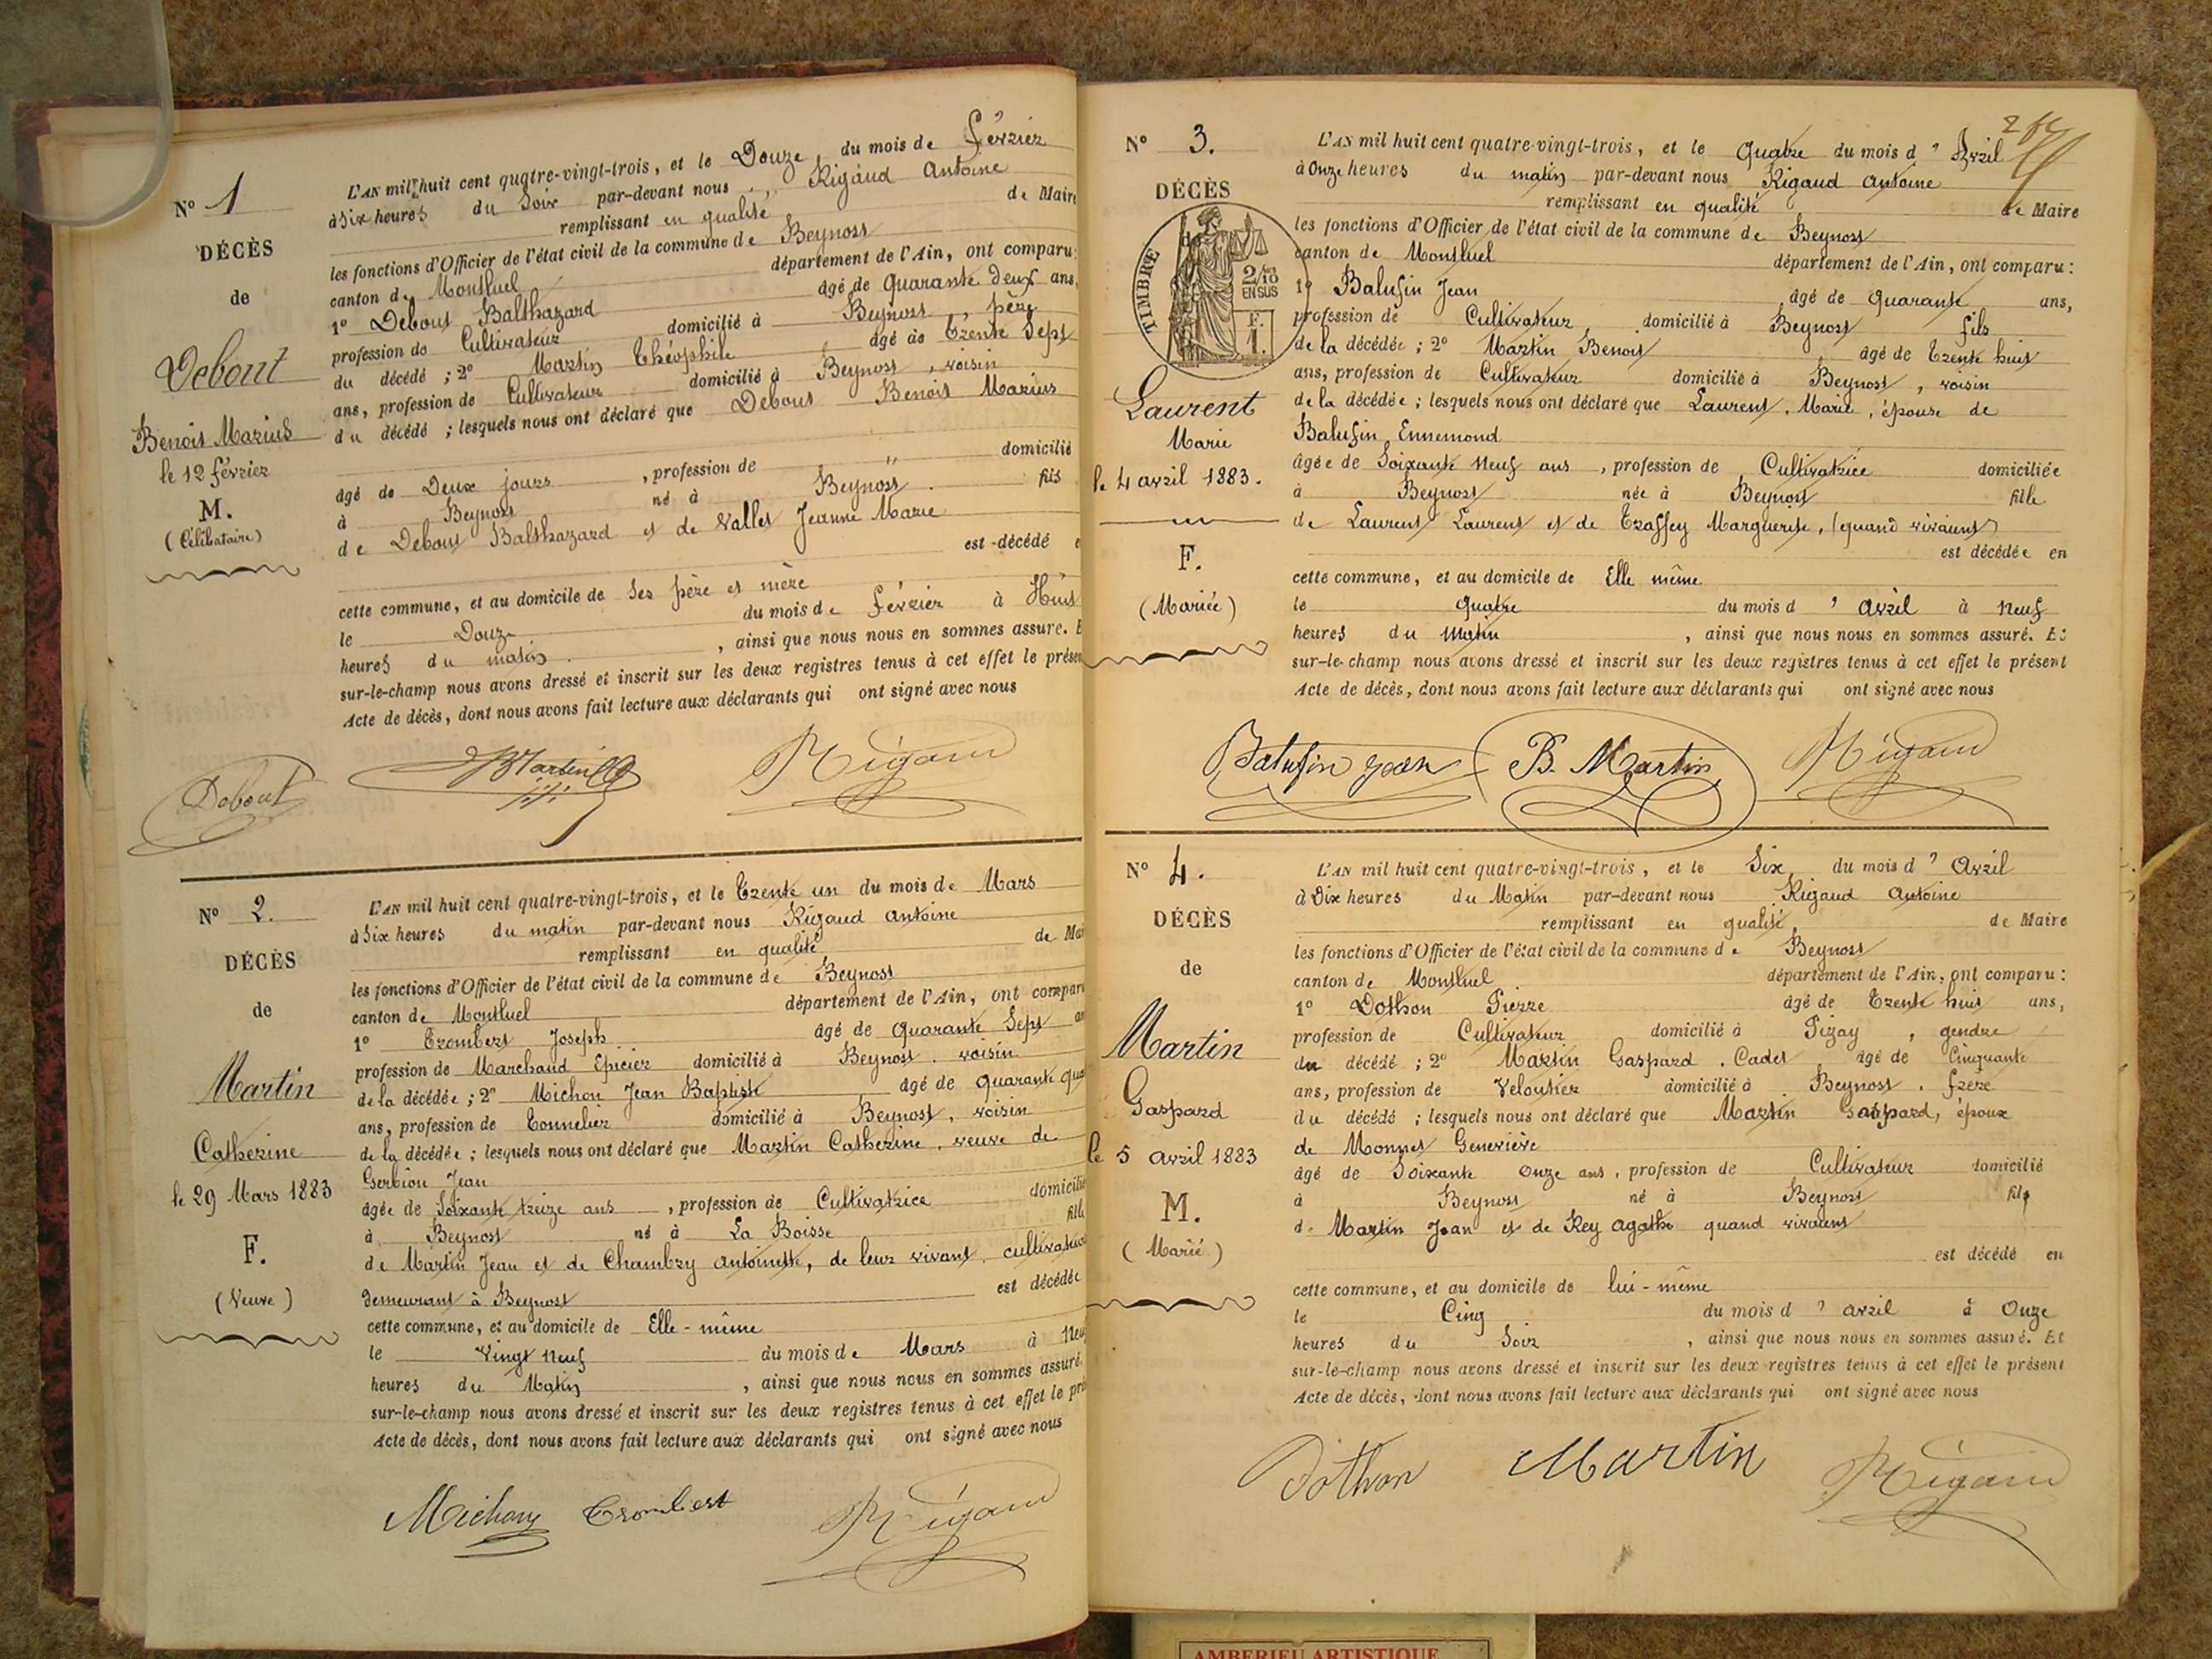 N° 1
DÉCÈS
de
Debout
Benoit Marius
le 12 février
M.
(Célibataire)
L'AN mil huit cent quatre-vingt-trois, et le Douze, du mois de février
à Six heures du Soir par-devant nous Rigaud Antoine
remplissant en qualité de Maire
les fonctions d'Officier de l'état civil de la commune de Beynost
canton de Montluel département de l'Ain, ont comparu
1° Debout Balthazard âgé de Quarante deux ans,
profession de Cultivateur domicilié à Beynost, père
du décédé ; 2° Martin Théophile âgé de Trente Sept
ans, profession de Cultivateur domicilié à Beynost, voisin
du décédé ; lesquels nous ont déclaré que Debout Benoit Marius
domicilié
âgé de Deux jours, profession de "
à Beynost né à Beynost fils
de Debout Balthazard et de Vallet Jeanne Marie
est décédé e
cette commune, et au domicile de Ses père et mère
le Douze du mois de février à Huit
heures du matin, ainsi que nous nous en sommes assuré. E
sur-le-champ nous avons dressé et inscrit sur les deux registres tenus à cet effet le présen
Acte de décès, dont nous avons fait lecture aux déclarants qui ont signé avec nous
Debout Martin Rigaud
N° 2.
DÉCÈS
de
Martin
Catherine
le 29 Mars 1883
F.
(Veuve)
L'AN mil huit cent quatre-vingt-trois, et le Trente un du mois de Mars
à Six heures du matin par-devant nous Rigaud Antoine
remplissant en qualité de Mai
les fonctions d'Officier de l'état civil de la commune de Beynost
canton de Montluel département de l'Ain, ont comparu
1° Trombert Joseph âgé de Quarante Sept an
profession de Marchand Epicier domicilié à Beynost. voisin
de la décédée ; 2° Michon Jean Baptiste âgé de Quarante qua
ans, profession de Tonnelier domicilié à Beynost, voisin
de la décédée ; lesquels nous ont déclaré que Martin Catherine, veuve de
Gerbion Jean
âgée de Soixante treize ans, profession de Cultivatrice domicilié
à Beynost né à La Boisse fille
de Martin Jean et de Chambry Antoinette, de leur vivant cultivateur
demeurant à Beynost est décédée
cette commune, et au domicile de Elle-même
le Vingt neuf du mois de Mars à Neuf
heures du Matin, ainsi que nous nous en sommes assuré.
sur-le-champ nous avons dressé et inscrit sur les deux registres tenus à cet effet le pré
Acte de décès, dont nous avons fait lecture aux déclarants qui ont signé avec nous
Michon Trombert Rigaud
N° 3.
DÉCÈS
TIMBRE
2/10
EN SUS
F.
1.
Laurent
Marie
le 4 avril 1883.
F.
(Mariée)
L'AN mil huit cent quatre-vingt-trois, et le Quatre du mois d' Avril
à Onze heures du matin par-devant nous Rigaud Antoine
remplissant en qualité de Maire
les fonctions d'Officier de l'état civil de la commune de Beynost
canton de Montluel département de l'Ain, ont comparu :
1° Balufin Jean, âgé de Quarante ans,
profession de Cultivateur, domicilié à Beynost fils
de la décédée ; 2° Martin Benoit âgé de Trente huit
ans, profession de Cultivateur domicilié à Beynost, voisin
de la décédée ; lesquels nous ont déclaré que Laurent, Marie, épouse de
Balufin Ennemond
âgée de Soixante Neuf ans, profession de Cultivatrice domiciliée
à Beynost née à Beynost fille
de Laurent Laurent et de Traffey Marguerite, (quand vivaient)
est décédée en
cette commune, et au domicile de Elle même
le Quatre du mois d' avril à Neuf
heures du Matin, ainsi que nous nous en sommes assuré. Et
sur-le-champ nous avons dressé et inscrit sur les deux registres tenus à cet effet le présent
Acte de décès, dont nous avons fait lecture aux déclarants qui ont signé avec nous
Balufin jean B. Martin Rigaud
N° 4.
DÉCÈS
de
Martin
Gaspard
le 5 avril 1883
M.
(Marié)
L'AN mil huit cent quatre-vingt-trois, et le Six, du mois d' Avril
à Dix heures du Matin par-devant nous Rigaud Antoine
remplissant en qualité de Maire
les fonctions d'Officier de l'état civil de la commune de Beynost
canton de Montluel département de l'Ain, ont comparu :
1° Dothon Pierre âgé de Trente huit ans,
profession de Cultivateur domicilié à Pizay, gendre
du décédé ; 2° Martin Gaspard. Cadet âgé de Cinquante
ans, profession de Veloutier domicilié à Beynost. frère
du décédé ; lesquels nous ont déclaré que Martin Gaspard, époux
de Monnet Geneviève
âgé de Soixante Onze ans, profession de Cultivateur domicilié
à Beynost né à Beynost fils
de Martin Jean et de Rey Agathe quand vivaient
est décédé en
cette commune, et au domicile de lui-même
le Cinq du mois d' avril à Onze
heures du Soir, ainsi que nous nous en sommes assuré. Et
sur-le-champ nous avons dressé et inscrit sur les deux registres tenus à cet effet le présent
Acte de décès, dont nous avons fait lecture aux déclarants qui ont signé avec nous
Dothon Martin Rigaud
AMBERIEU ARTISTIQUE